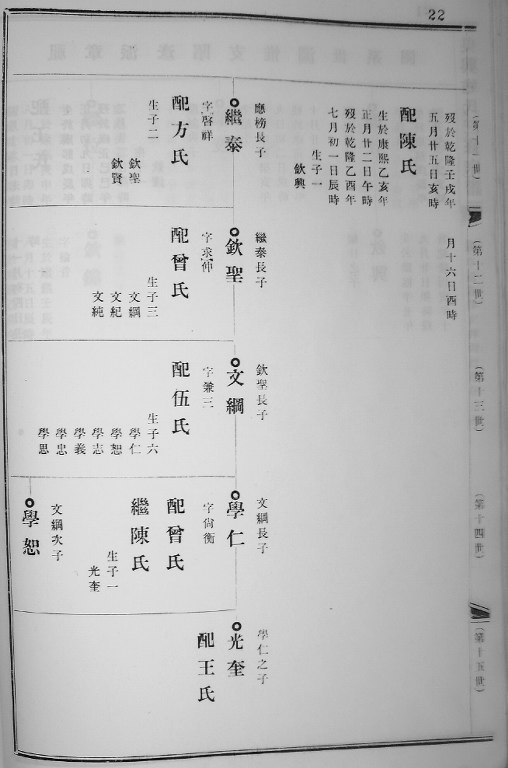 22
（第十一世）
歿於乾隆壬戌年
五月廿五日亥時
配陳氏
生於康熙乙亥年
正月廿二日午時
歿於乾隆乙酉年
七月初一日辰時
生子一
欽興
應榜長子
繼泰
字啓祥
配方氏
生子二
欽聖
欽賢
（第十二世）
月十六日酉時
繼泰長子
欽聖
字求仲
配曾氏
生子三
文綱
文紀
文純
（第十三世）
欽聖長子
文綱
字兼三
配伍氏
生子六
學仁
學恕
學志
學義
學忠
學思
（第十四世）
文綱長子
學仁
字尙衡
配曾氏
繼陳氏
生子一
光奎
文綱次子
學恕
（第十五世）
學仁之子
光奎
配王氏